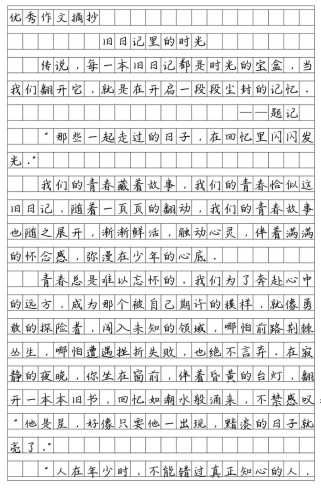 优秀作文摘抄
旧日记里的时光
传说，每一本旧日记都是时光的宝盒，当
我们翻开它，就是在开启一段段尘封的记忆．
——题记
“那些一起走过的日子，在回忆里闪闪发
光．”
我们的青春藏着故事，我们的青春恰似这
旧日记，随着一页页的翻动，我们的青春故事
也随之展开，渐渐鲜活，触动心灵，伴着满满
的怀念感，弥漫在少年的心底．
青春总是难以忘怀的．我们为了奔赴心中
的远方，成为那个被自己期许的模样，就像勇
敢的探险者，闯入未知的领域，哪怕前路荆棘
丛生，哪怕遭遇挫折失败，也绝不言弃．在寂
静的夜晚，你坐在窗前，伴着昏黄的台灯，翻
开一本本旧书，回忆如潮水般涌来，不禁感叹：
“他是星，好像只要他一出现，黯淡的日子就
亮了．”
“人在年少时，不能错过真正知心的人，